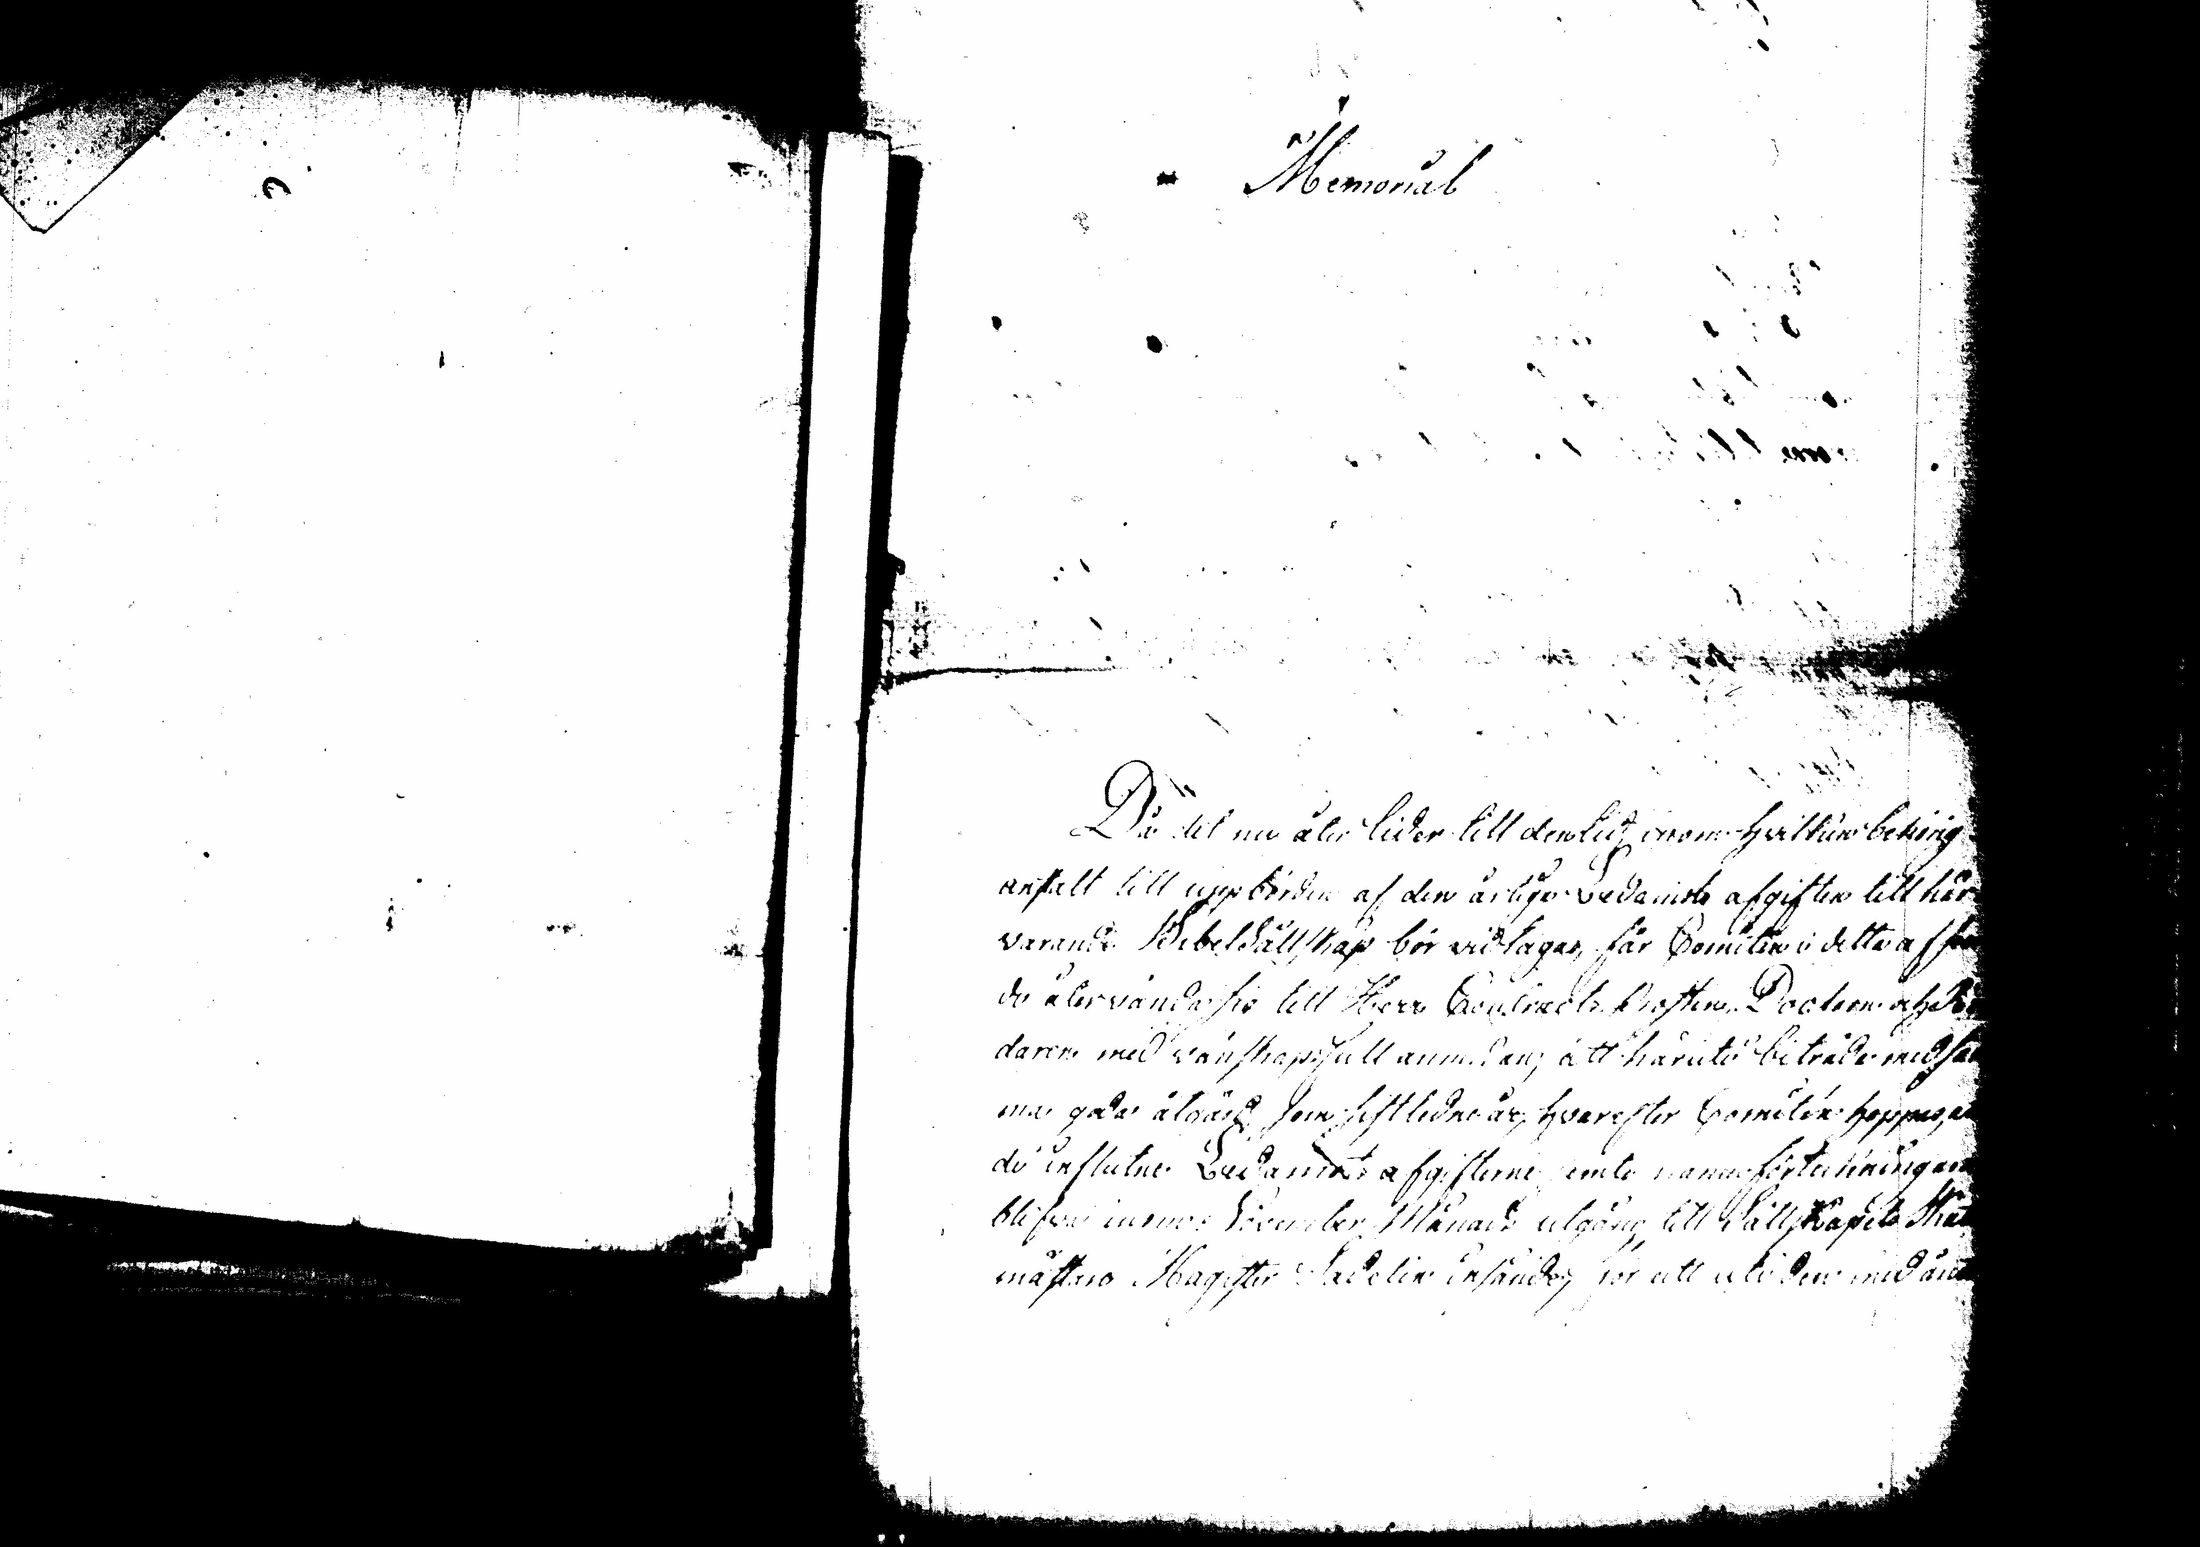 Memorial
Då det nu åter lider till den tid, inom hvilken behörig
anstalt till uppbörden af den årliga Ledamots afgiften till här
varande Bibelsällskap bör vidtagas, får Comitén i detta afseen
de återvända sig till Herr Contracts Prosten, Doctorn och
daren med vänskapsfull anmodan, att häruti biträda med sam
ma goda åtgärd som sistledne år, hvarefter Comitén hoppas, at
de influtne Ledamots afgifterne jemte namnförteckningarne
blifva innan November Månads utgång till Sällskapets Skatt
mästare Magister Sadelin insände, för att i tiden med